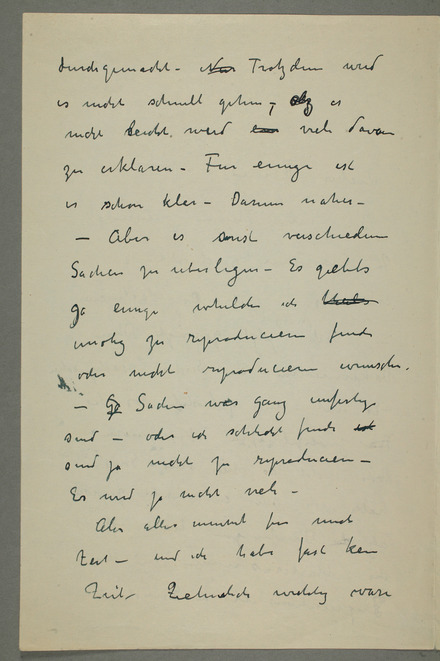 durchgemacht – Trotzdem wird
es nicht schnell gehen, es
nicht leicht wird viel davon
zu erklaren – Fur einige ist
es schon klar – Darum
– Aber es sonst verschiedene
Sachen zu uberlegen – Es giebt
ja einige ich
unotig zu reproducieren finde
oder nicht reproducieren wunsche.
– Sachen was ganz unfertig
sind – oder ich schlecht finde
sind ja nicht zu reproducieren –
Es wird ja nicht viel –
Aber alles nimmt fur mich
Zeit – und ich habe fast kein
Zeit wichtig ware